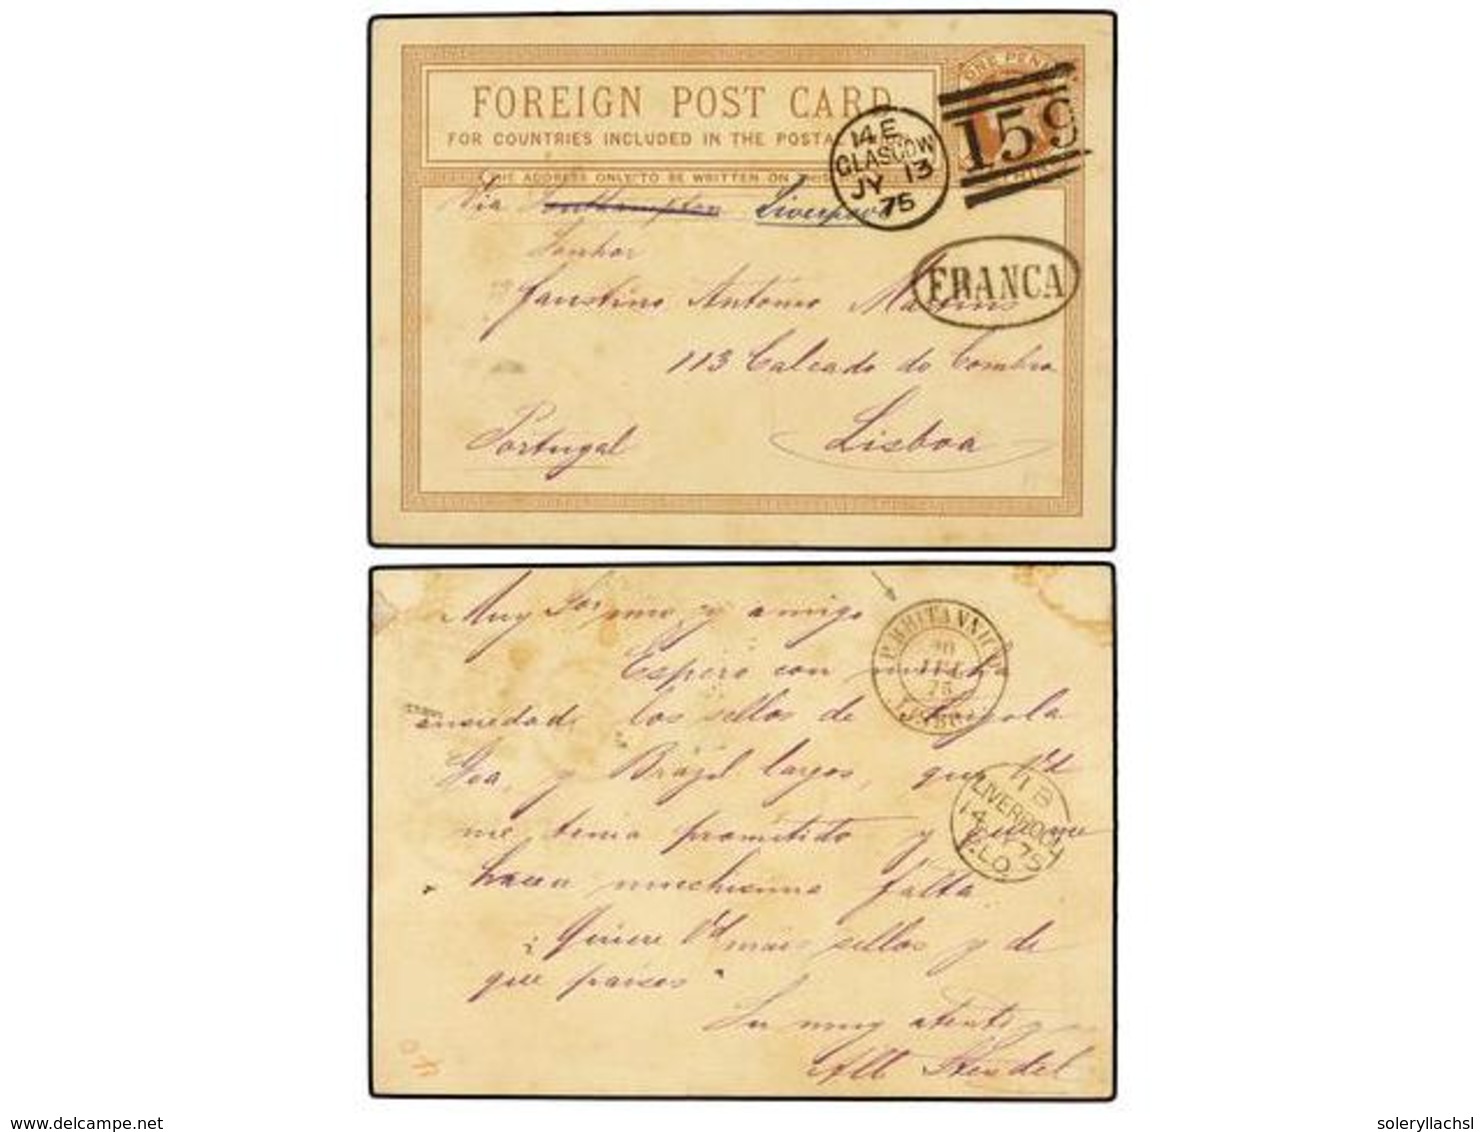 ONE PENNY
FOREIGN POST CARD
FOR COUNTRIES INCLUDED IN THE POSTA
THE ADDRESS ONLY TO BE WRITTEN ON THIS
14 E
GLASGOW
JY 13
75
159
Via Southampton Liverpool
Senhor
FRANCA
Faustino Antonio Martins
113 Calcado do Combro
Portugal Lisboa
Muy Sor mio, y amigo
P. BRITANNICO
20
JUL
75
LISBOA
Espero con mucha
ansiedad los sellos de Angola
Goa, y Brazil largos, que Vd
11 B
LIVERPOOL
14 JY 75
P.L.O.
me tenia prometido y que me
hacen muchisima falta
¿Quiere Vd mas sellos y de
que paises
Su muy atento
Stendel
delcampe.net
soleryllachsl